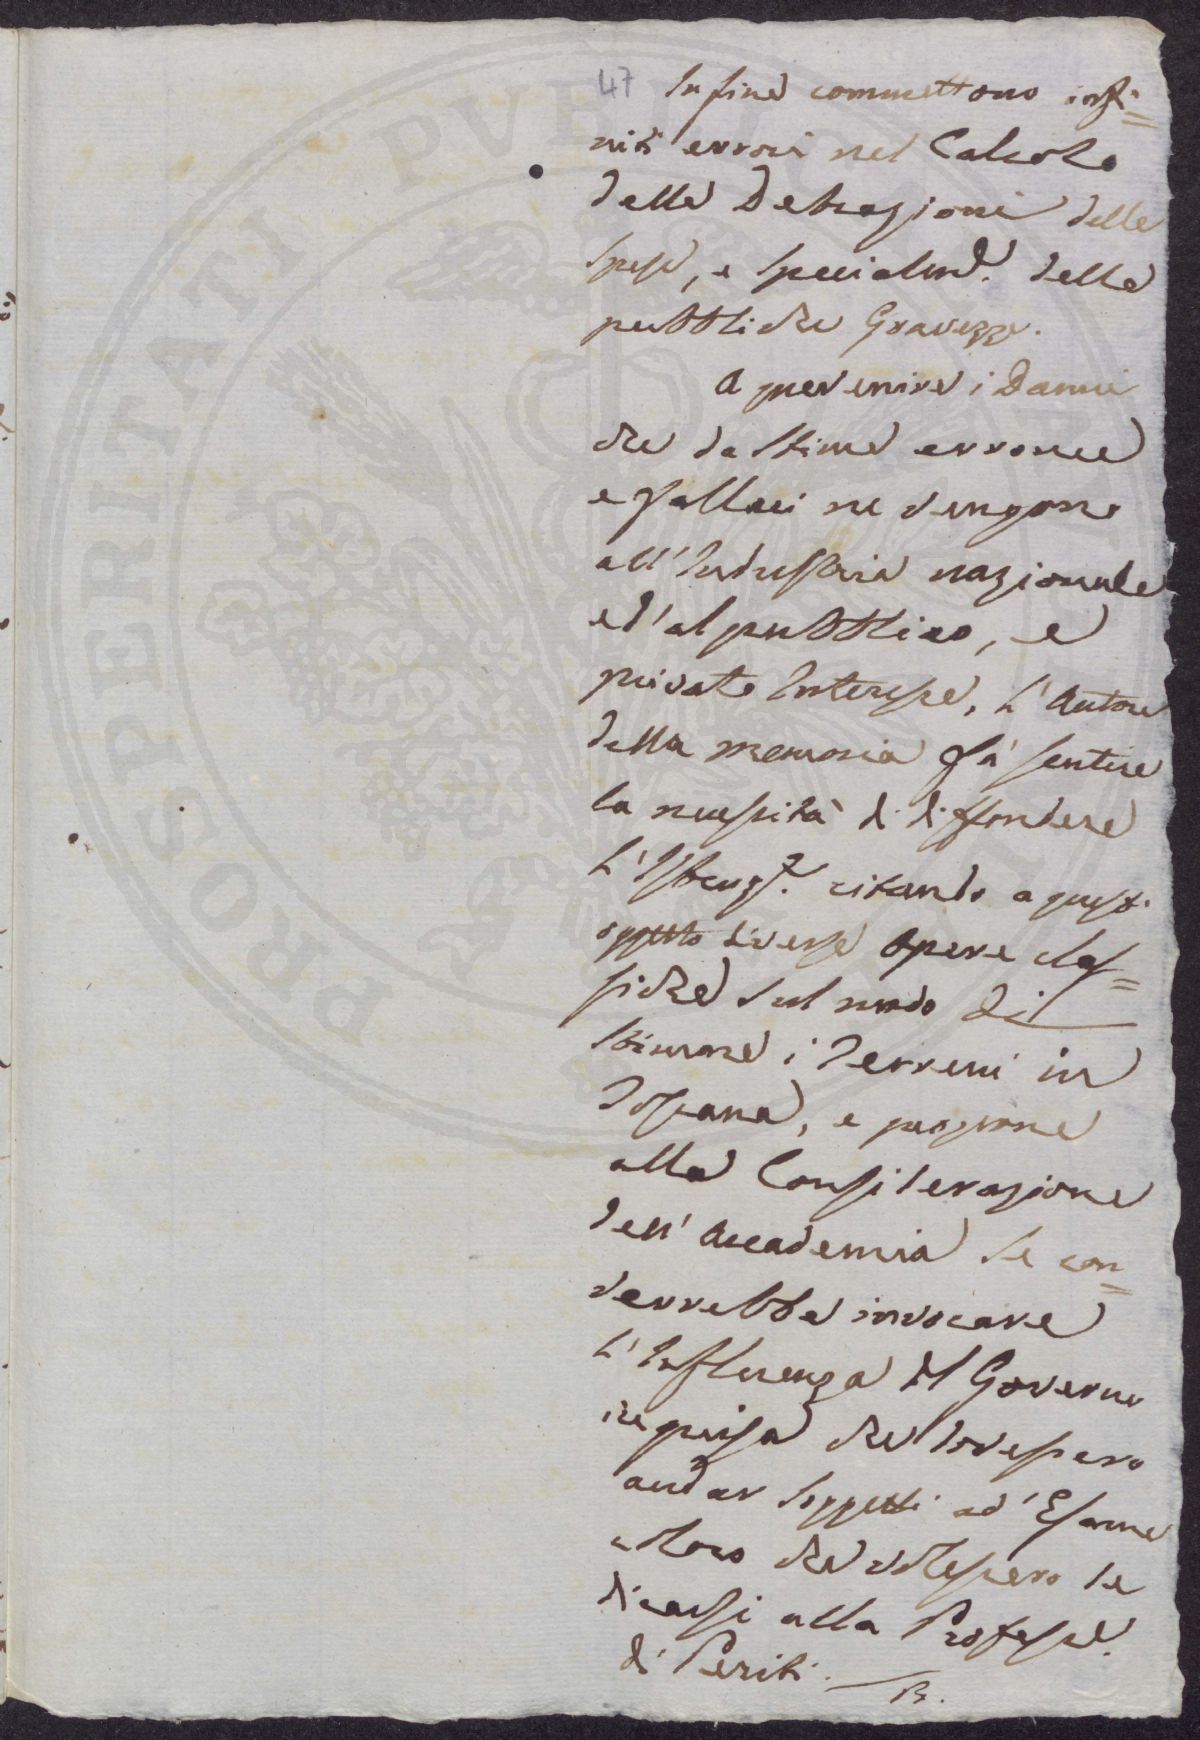 47 Infine commettono infi=
niti errori nel Calcolo
delle Detrazioni delle
spese, e specialme. delle
pubbliche Gravezze.
A prevenire i Danni
che da stime erronee
e fallaci ne vengono
all'Industria nazionale
ed'al pubblico, e
privato Interesse, l'Autore
della memoria fà sentire
la necessità di diffondere
l'Istruze. citando a questo
oggetto diverse Opere clas=
siche sul modo di
stimare i Terreni in
Toscana, e propone
alla Considerazione
dell'Accademia se con=
verrebbe invocare
l'Influenza del Governo
in guisa che dovessero
andar soggetti ad'Esame
coloro che volessero de
dicarsi alla Professe.
di Periti.
PROSPERITATI PVBLICAE